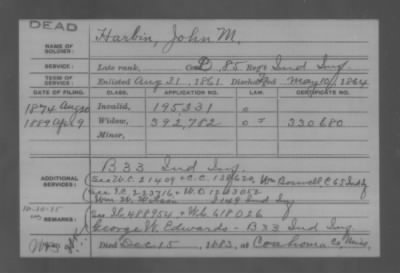 DEAD
NAME OF SOLDIER: Harbin, John M.
SERVICE: Late rank, Co. D, 85 Reg't Ind Inf
TERM OF SERVICE: Enlisted Aug 21, 1861 Discharged May 10, 1864
DATE OF FILING. CLASS. APPLICATION NO. LAW. CERTIFICATE NO.
1874 Aug 20 Invalid, 195331 0
1884 Apl 9 Widow, 392,782 330680
Minor,
ADDITIONAL SERVICES: B 33 Ind Inf.
See W.C. 21409 + C.C. Wm Boswell C 65 Ind
See I.C. 223716 + W.O. 1213052
Wm W. Wilson I 149 Ind Inf
REMARKS: See Ib 488954 + W.C. 618026
George W. Edwards - B 33 Ind Inf
Died Dec 15, 1883, at Coahoma Co, Miss.